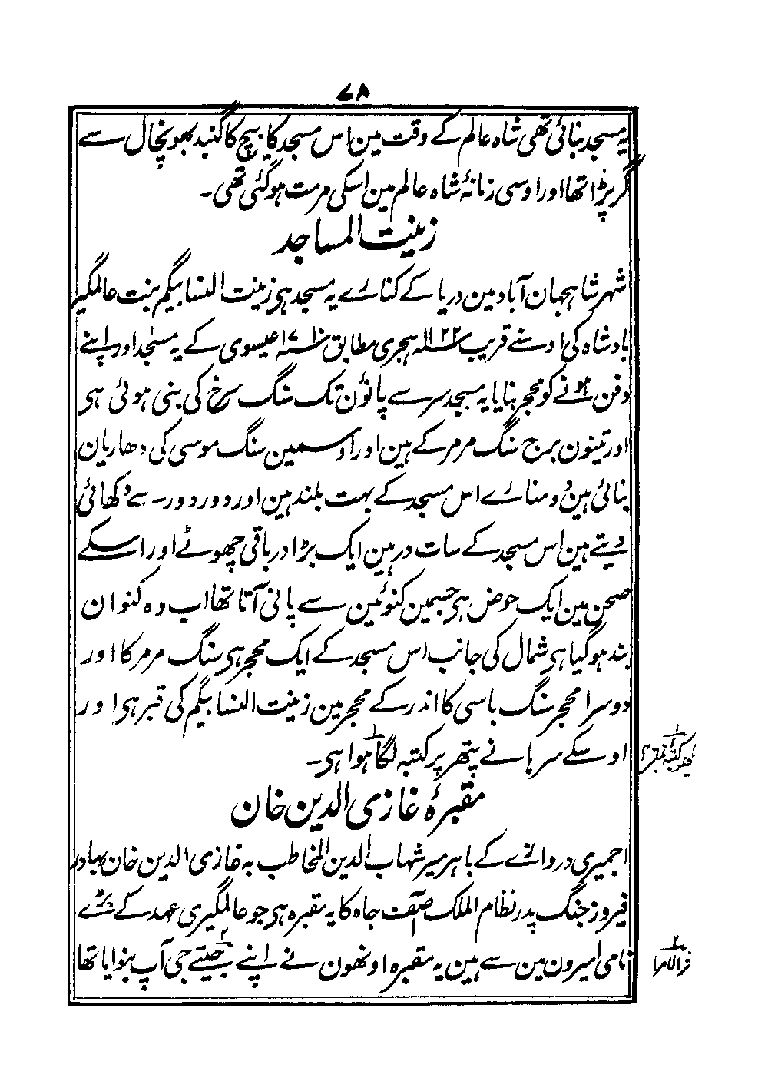 ۷۸
یہ مسجد بنائی تھی شاہ عالم کے وقت مین اس مسجد کا بیچ کا گنبد بھونچال سے
گر پڑا تھا اور اوسی زمانۂ شاہ عالم مین اسکی مرمت ہوگئی تھی۔
زینت المساجد
شہر شاہجہان آباد مین دریا کے کنارے یہ مسجد ہی زینت النسا بیگم بنت عالمگیر
بادشاہ کی اوسنے قریب ۱۱۲۲ ہجری مطابق ۱۷۱۰ عیسوی کے یہ مسجد اور اپنے
دفن ہونے کو محجر بنایا یہ مسجد سر سے پاؤن تک سنگ سرخ کی بنی ہوئی ہی
اور تینون برج سنگ مرمر کے ہین اور اوسمین سنگ موسی کی دھاریان
بنائی ہین دو منارے اس مسجد کے بہت بلند ہین اور دور دور سے دکھائی
دیتے ہین اس مسجد کے سات در ہین ایک بڑا در باقی چھوٹے اور اسکے
صحن مین ایک حوض ہی جسمین کنوئین سے پانی آتا تھا اب وہ کنوان
بند ہوگیا ہی شمال کی جانب اس مسجد کے ایک محجر ہی سنگ مرمر کا اور
دوسرا محجر سنگ باسی کا اندر کے محجر مین زینت النسا بیگم کی قبر ہی اور
اوسکے سرہانے پتھر پر کتبہ لگا ہوا ہی۔
مقبرۂ غازی الدین خان
اجمیری دروازے کے باہر میر شہاب الدین المخاطب بہ غازی الدین خان بہادر
فیروز جنگ پدر نظام الملک آصف جاہ کا یہ مقبرہ ہی جو عالمگیری عہد کے بڑے
نامی امیرون مین سے ہین یہ مقبرہ اونھون نے اپنے جیتے جی آپ بنوایا تھا